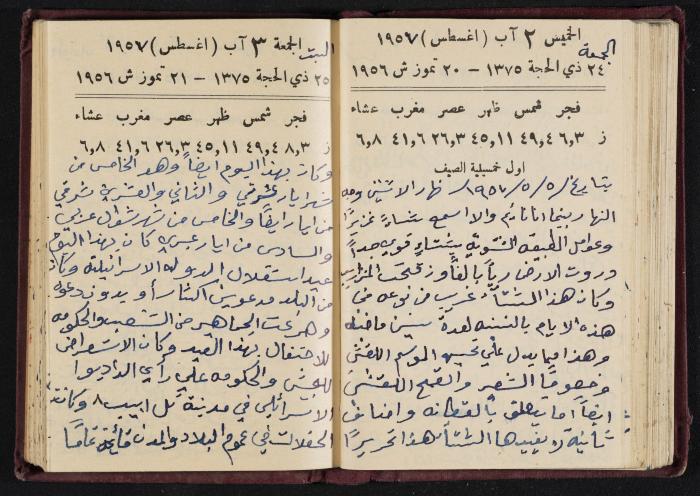 الخميس ٢ آب (اغسطس) ١٩٥٧
الجمعة
٢٤ ذي الحجة ١٣٧٥ — ٢٠ تموز ش ١٩٥٦
فجر شمس ظهر عصر مغرب عشاء
ز ٦,٣ ٤٩,٤ ٤٥,١١ ٢٦,٣ ٤١,٦ ٦,٨
اول الصيف
بتاريخ ٥/٥/١٩٥٧ نهار الاثنين
النهار بينما انا نائم والا اسمع شتاء غزيرًا
وعوامل الطبيعه الشتويه بشتاءٍ قويه جداً
وروت الارض رياً بالغاً
وكان هذا الشتاء غريب من نوعه في
هذه الايام بالسنه لعدة سنين ماضيه
وهذا مما يدل على تحسين الموسم
وخصوصًا الشعير والقمح
ايضاً اما يتعلق بالقطانه واصناف
ثانية يفيدها الشتاء هذا تحريرًا
الجمعة ٣ آب (اغسطس) ١٩٥٧
السبت
٢٥ ذي الحجة ١٣٧٥ — ٢١ تموز ش ١٩٥٦
فجر شمس ظهر عصر مغرب عشاء
ز ٨,٣ ٤٩,٤ ٤٥,١١ ٢٦,٣ ٤١,٦ ٦,٨
وكان بهذا اليوم ايضاً وهو الخامس من
شهر ايار غربي والثاني والعشرين شرقي
من ايار ايضًا والخامس من شهر شوال عربي
والسادس من ايار عبري كان بهذا اليوم
عيد استقلال الدوله الاسرائيلية وكان
من البلد مدعوين اكثار أو بدون دعوه
وهرعت الجماهير من الشعب والحكومه
للاحتفال بهذا العيد وكان الاستعراض
للجيش والحكومه على رأي الراديوا
الاسرائيلي في مدينة تل ابيب وكانت
الحفلات في عموم البلاد والمدن قائمة تمامًا